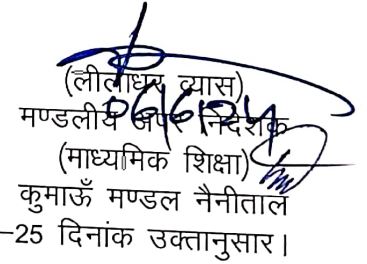 (लीलाधर व्यास)
06/6/24
मण्डलीय अपर निदेशक
(माध्यमिक शिक्षा)
कुमाऊँ मण्डल नैनीताल
–25 दिनांक उक्तानुसार।